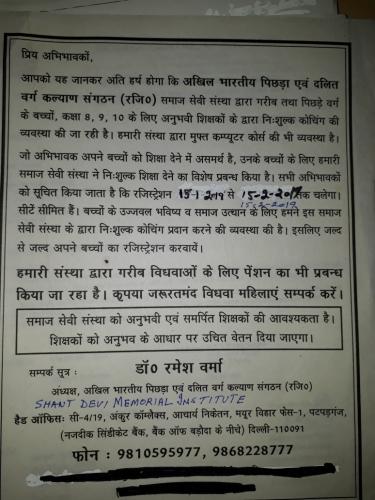 प्रिय अभिभावकों,
आपको यह जानकर अति हर्ष होगा कि अखिल भारतीय पिछड़ा एवं दलित
वर्ग कल्याण संगठन (रजि०) समाज सेवी संस्था द्वारा गरीब तथा पिछड़े वर्ग
के बच्चों, कक्षा 8, 9, 10 के लिए अनुभवी शिक्षकों के द्वारा निःशुल्क कोचिंग की
व्यवस्था की जा रही है। हमारी संस्था द्वारा मुफ्त कम्प्यूटर कोर्स की भी व्यवस्था है।
जो अभिभावक अपने बच्चों को शिक्षा देने में असमर्थ है, उनके बच्चों के लिए हमारी
समाज सेवी संस्था ने निःशुल्क शिक्षा देने का विशेष प्रबन्ध किया है। सभी अभिभावकों
को सूचित किया जाता है कि रजिस्ट्रेशन 15-1 2019 से 15-2-2019 तक चलेगा।
15-2-2019
सीटें सीमित हैं। बच्चों के उज्जवल भविष्य व समाज उत्थान के लिए हमने इस समाज
सेवी संस्था के द्वारा निःशुल्क कोचिंग प्रदान करने की व्यवस्था की है। इसलिए जल्द
से जल्द अपने बच्चों का रजिस्ट्रेशन करवायें।
हमारी संस्था द्वारा गरीब विधवाओं के लिए पेंशन का भी प्रबन्ध
किया जा रहा है। कृपया जरूरतमंद विधवा महिलाएं सम्पर्क करें।
समाज सेवी संस्था को अनुभवी एवं समर्पित शिक्षकों की आवश्यकता है।
शिक्षकों को अनुभव के आधार पर उचित वेतन दिया जाएगा।
सम्पर्क सूत्र : डॉ० रमेश वर्मा
अध्यक्ष, अखिल भारतीय पिछड़ा एवं दलित वर्ग कल्याण संगठन (रजि०)
SHANT DEVI MEMORIAL INSTITUTE
हैड ऑफिस: सी-4/19, अंकुर कॉम्लैक्स, आचार्य निकेतन, मयूर विहार फेस-1, पटपड़गंज,
(नजदीक सिंडीकेट बैंक, बैंक ऑफ बड़ौदा के नीचे) दिल्ली-110091
फोन : 9810595977, 9868228777